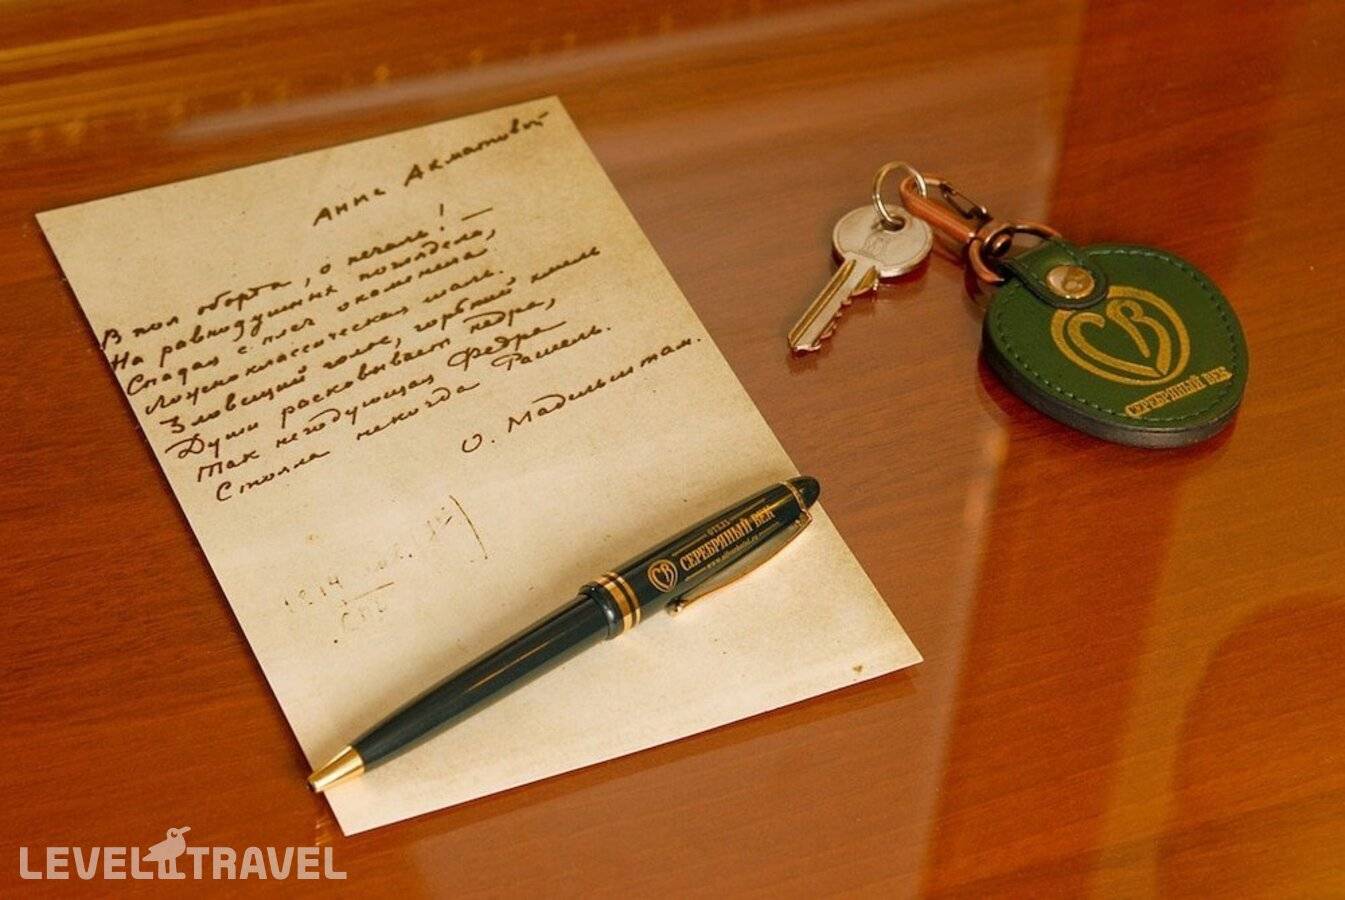 Анне Ахматовой
В пол оборота, о печаль! —
На равнодушных поглядела,
Спадая с плеч окаменела
Ложноклассическая шаль.
Зловещий голос, горький хмель
Души расковывает недра,
Так негодующая Федра
Стояла некогда Рашель.
О. Мандельштам.
1914
СПБ
ОТЕЛЬ
СВ СЕРЕБРЯНЫЙ ВЕК
СВ
СЕРЕБРЯНЫЙ ВЕК
LEVEL TRAVEL